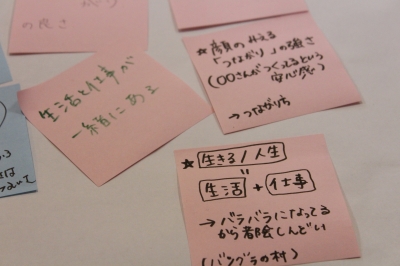 の良さ
生活と仕事が
一緒にある
★顔の見える
「つながり」の強さ
(〇〇さんがつくってるという
安心感)
→つながりも
★生きる/人生
"
生活+仕事
→バラバラになってる
から都会しんどい
(バングラの村)